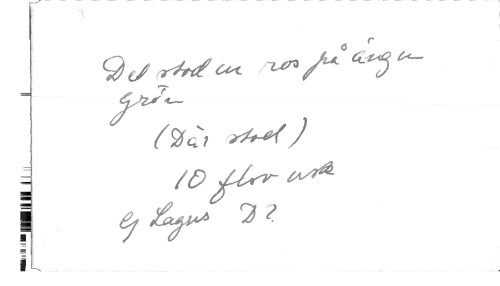 Det stod en ros på ängen
grön
(Där stod)
10 flov usa
Ej Lagus D?